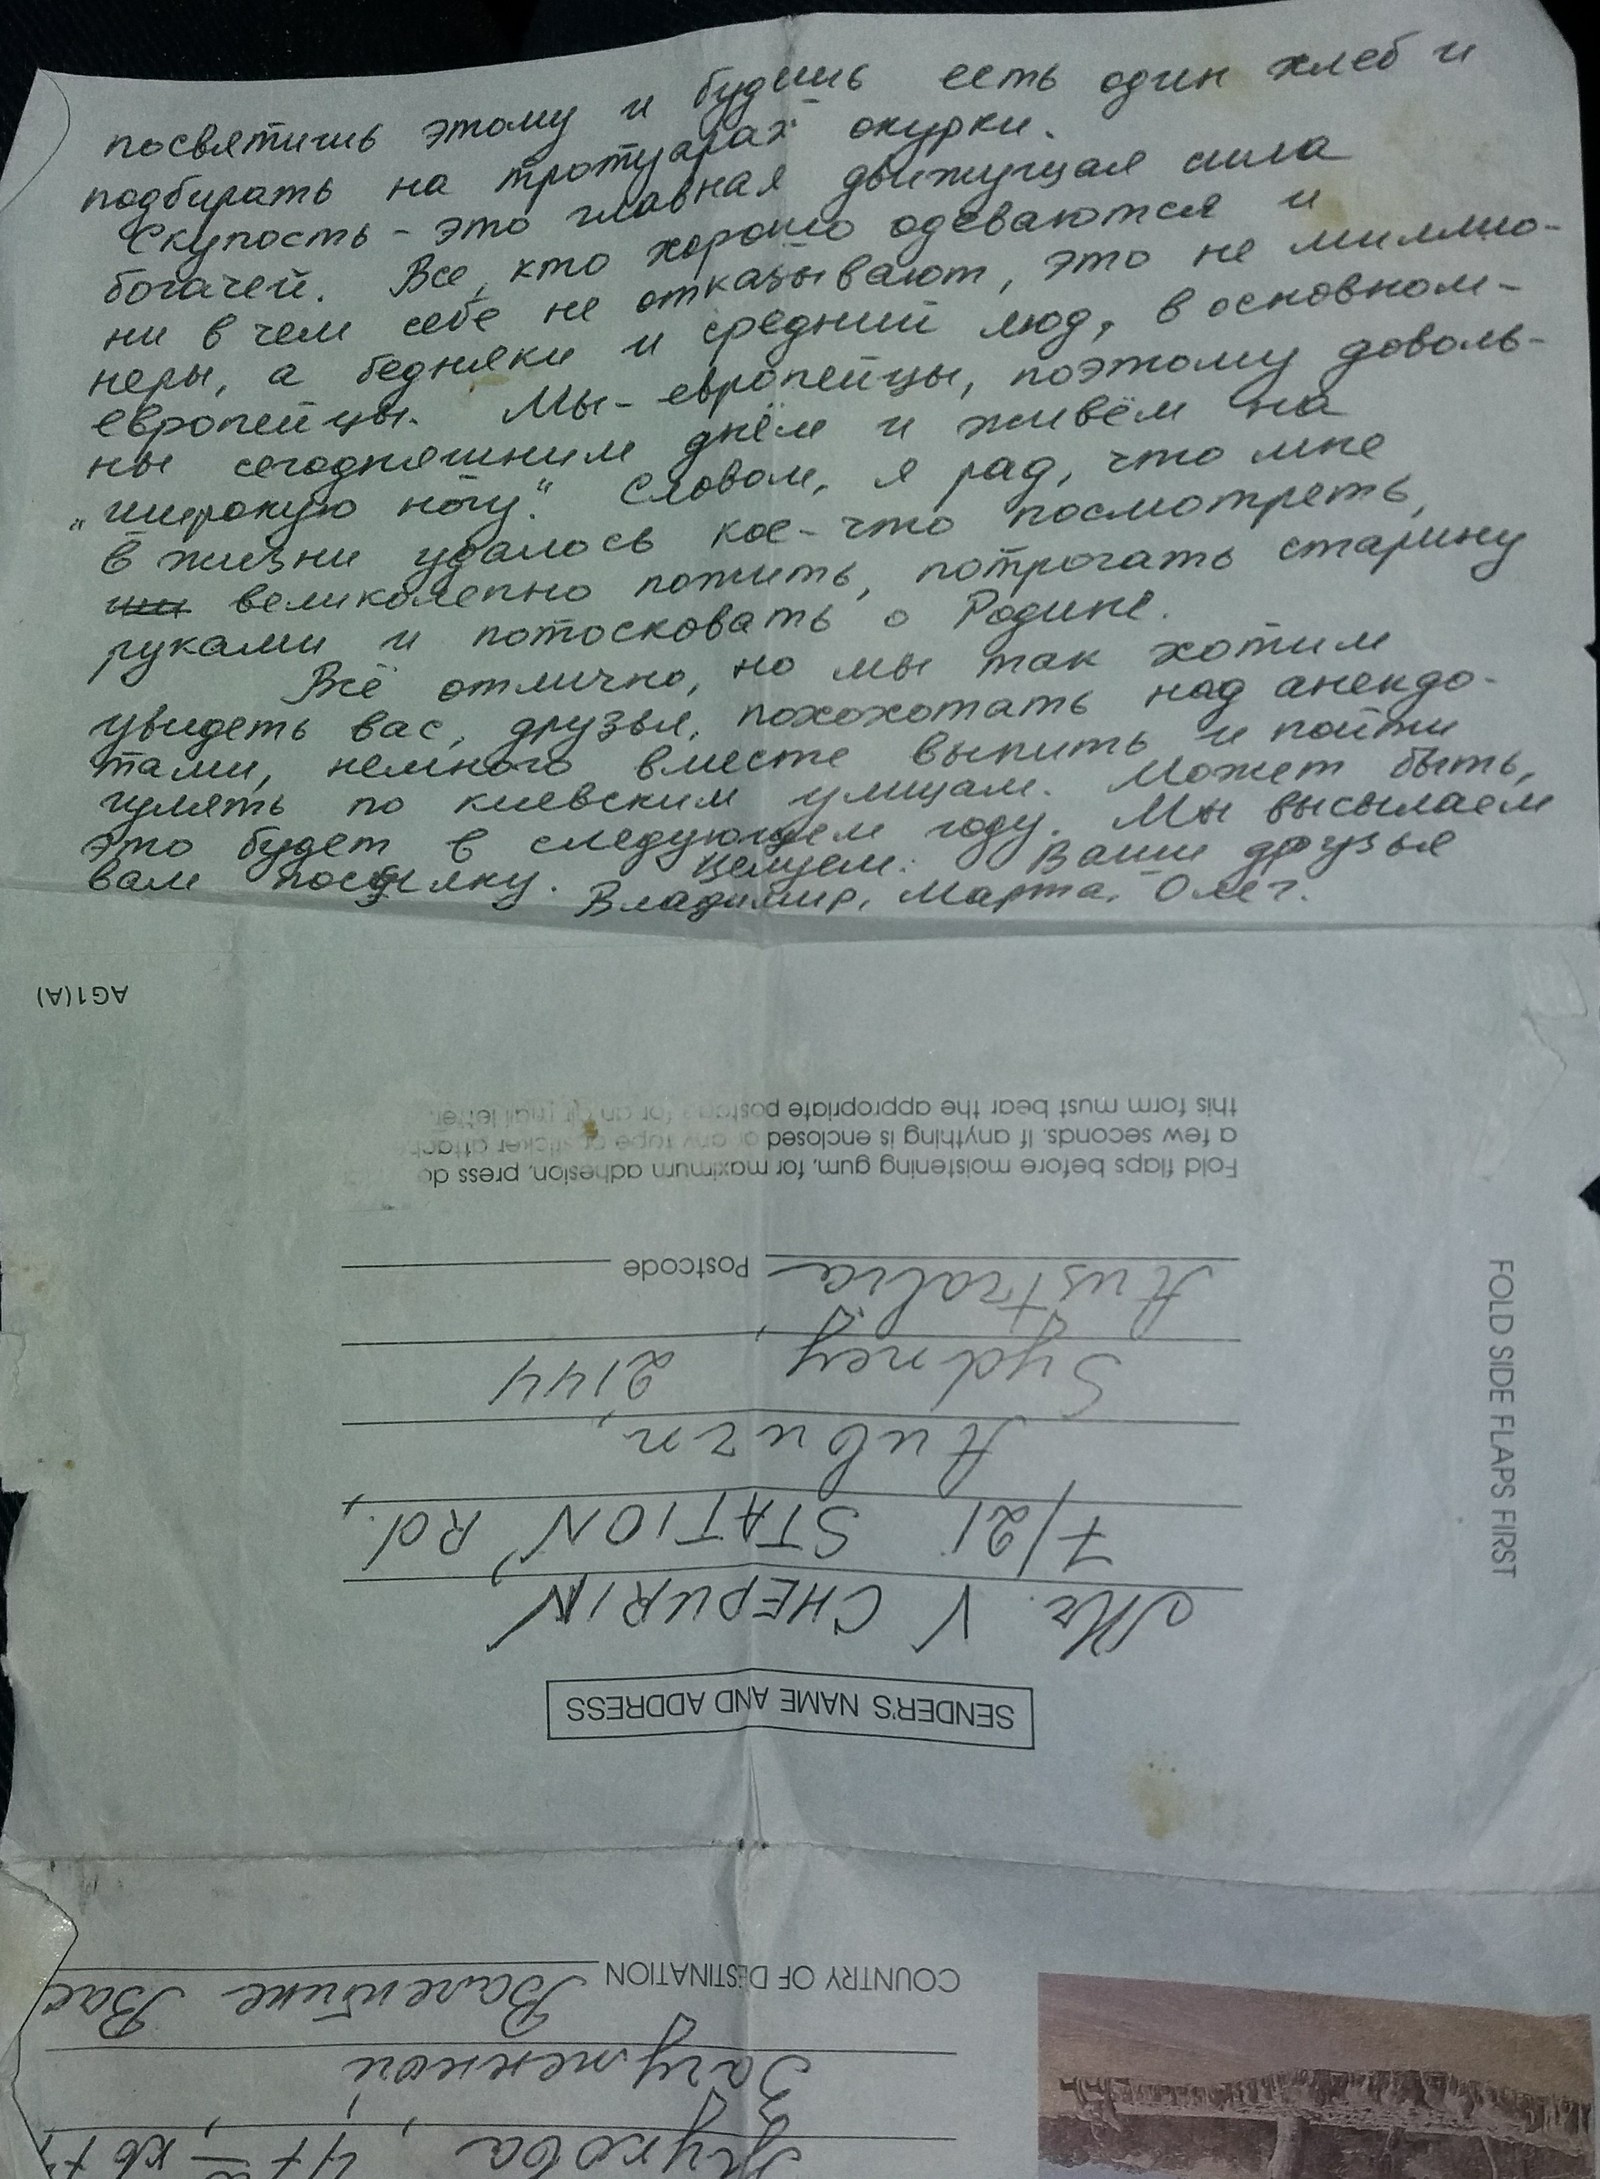 посвятишь этому и будешь есть один хлеб и
подбирать на тротуарах окурки.
Скупость - это главная движущая сила
богачей. Все, кто хорошо одеваются и
ни в чем себе не отказывают, это не миллио-
неры, а бедняки и средний люд, в основном -
европейцы. Мы - европейцы, поэтому доволь-
ны сегодняшним днём и живём на
„широкую ногу“. Словом, я рад, что мне
в жизни удалось кое-что посмотреть,
великолепно пожить, потрогать старину
руками и потосковать о Родине.
Всё отлично, но мы так хотим
увидеть вас, друзья, похохотать над анекдо-
тами, немного вместе выпить и пойти
гулять по киевским улицам. Может быть,
это будет в следующем году. Мы высылаем
вам посылку. Целуем. Ваши друзья
Владимир, Марта, Олег.
AG1(A)
FOLD SIDE FLAPS FIRST
SENDER'S NAME AND ADDRESS
Mr. V CHEPURIN
7/21 STATION Rd.,
Auburn,
Sydney, 2144
Australia Postcode
Fold flaps before moistening gum, for maximum adhesion, press do
a few seconds. If anything is enclosed or any tape or sticker attach
this form must bear the appropriate postage for an air mail letter.
Жукова, 47 кв
Загуменной
COUNTRY OF DESTINATION Валентине Вас